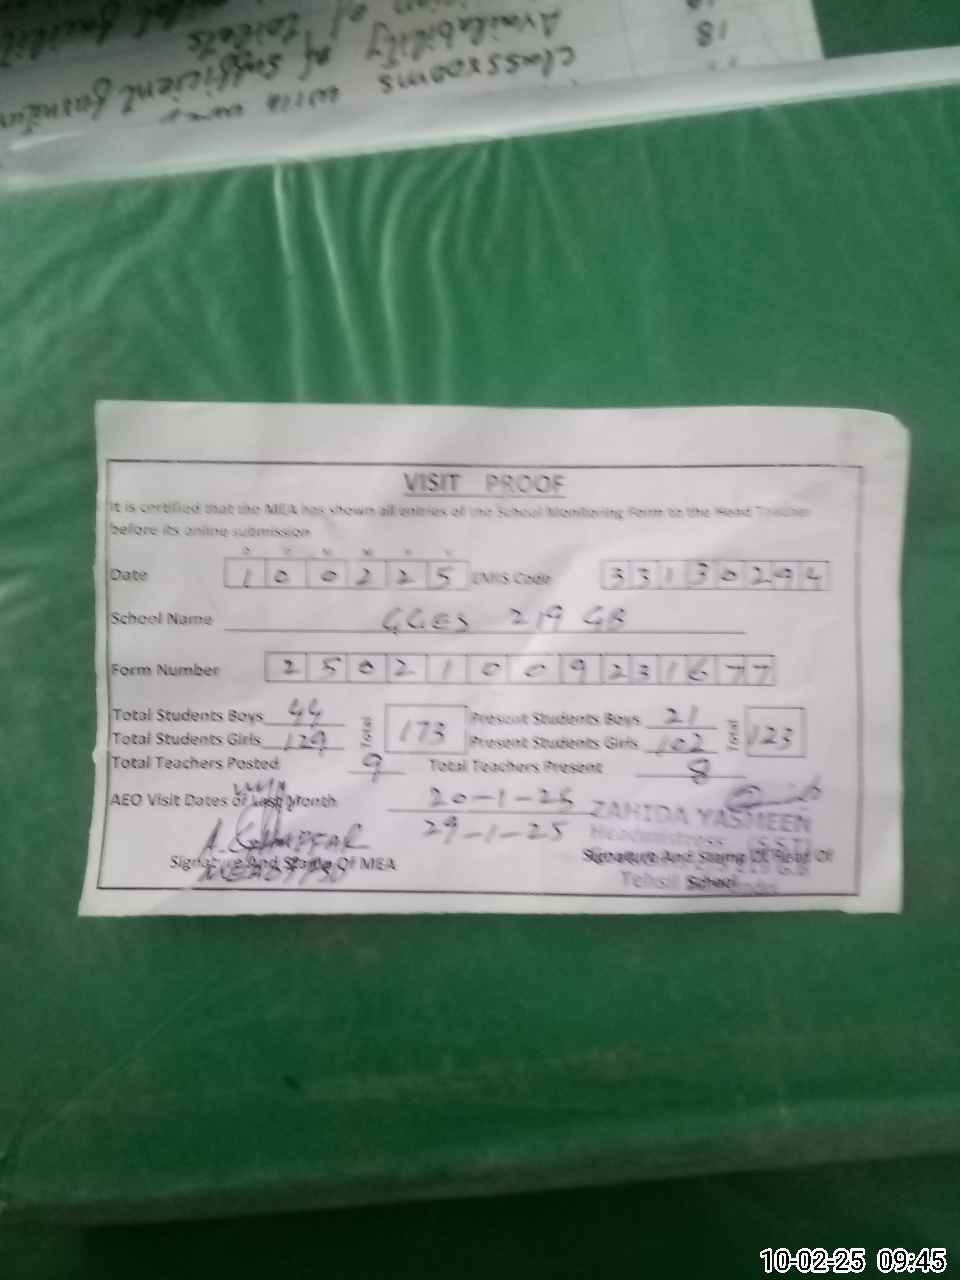 18
classrooms with
Availability of sufficient furniture
of toilets
VISIT PROOF
It is certified that the MEA has shown all entries of the School Monitoring Form to the Head Teacher
before its online submission
D D M M Y Y
Date 1 0 0 2 2 5 EMIS Code 3 3 1 3 0 2 9 4
School Name GGES 219 GB
Form Number 2 5 0 2 1 0 0 9 2 3 1 6 7 7
Total Students Boys 44 Total 173 Present Students Boys 21 Total 123
Total Students Girls 129 Present Students Girls 102
Total Teachers Posted 9 Total Teachers Present 8
AEO Visit Dates of Last Month 20-1-25
29-1-25
ZAHIDA YASMEEN
Headmistress (S.S.T)
A. GHAFFAR
Signature And Stamp Of MEA Signature And Stamp Of Head Of
School
Tehsil
10-02-25 09:45